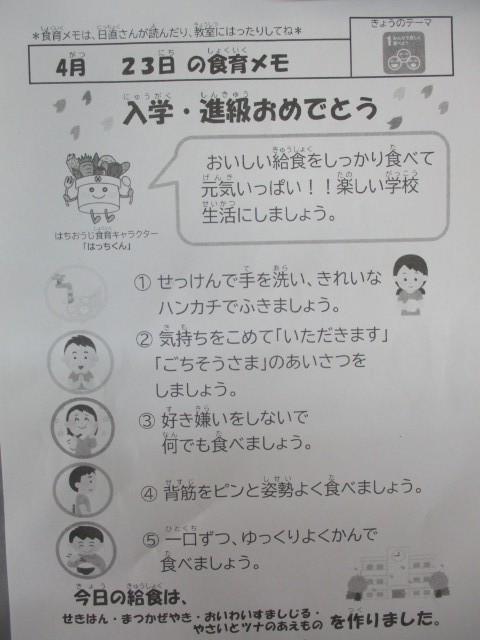 ＊食育メモは、日直さんが読んだり、教室にはったりしてね＊
きょうのテーマ
4月　23日 の食育メモ
入学・進級おめでとう
おいしい給食をしっかり食べて
元気いっぱい！！楽しい学校
生活にしましょう。
はちおうじ食育キャラクター
「はっちくん」
① せっけんで手を洗い、きれいな
ハンカチでふきましょう。
② 気持ちをこめて「いただきます」
「ごちそうさま」のあいさつを
しましょう。
③ 好き嫌いをしないで
何でも食べましょう。
④ 背筋をピンと姿勢よく食べましょう。
⑤ 一口ずつ、ゆっくりよくかんで
食べましょう。
今日の給食は、
せきはん・まつかぜやき・おいわいすましじる・
やさいとツナのあえもの を作りました。